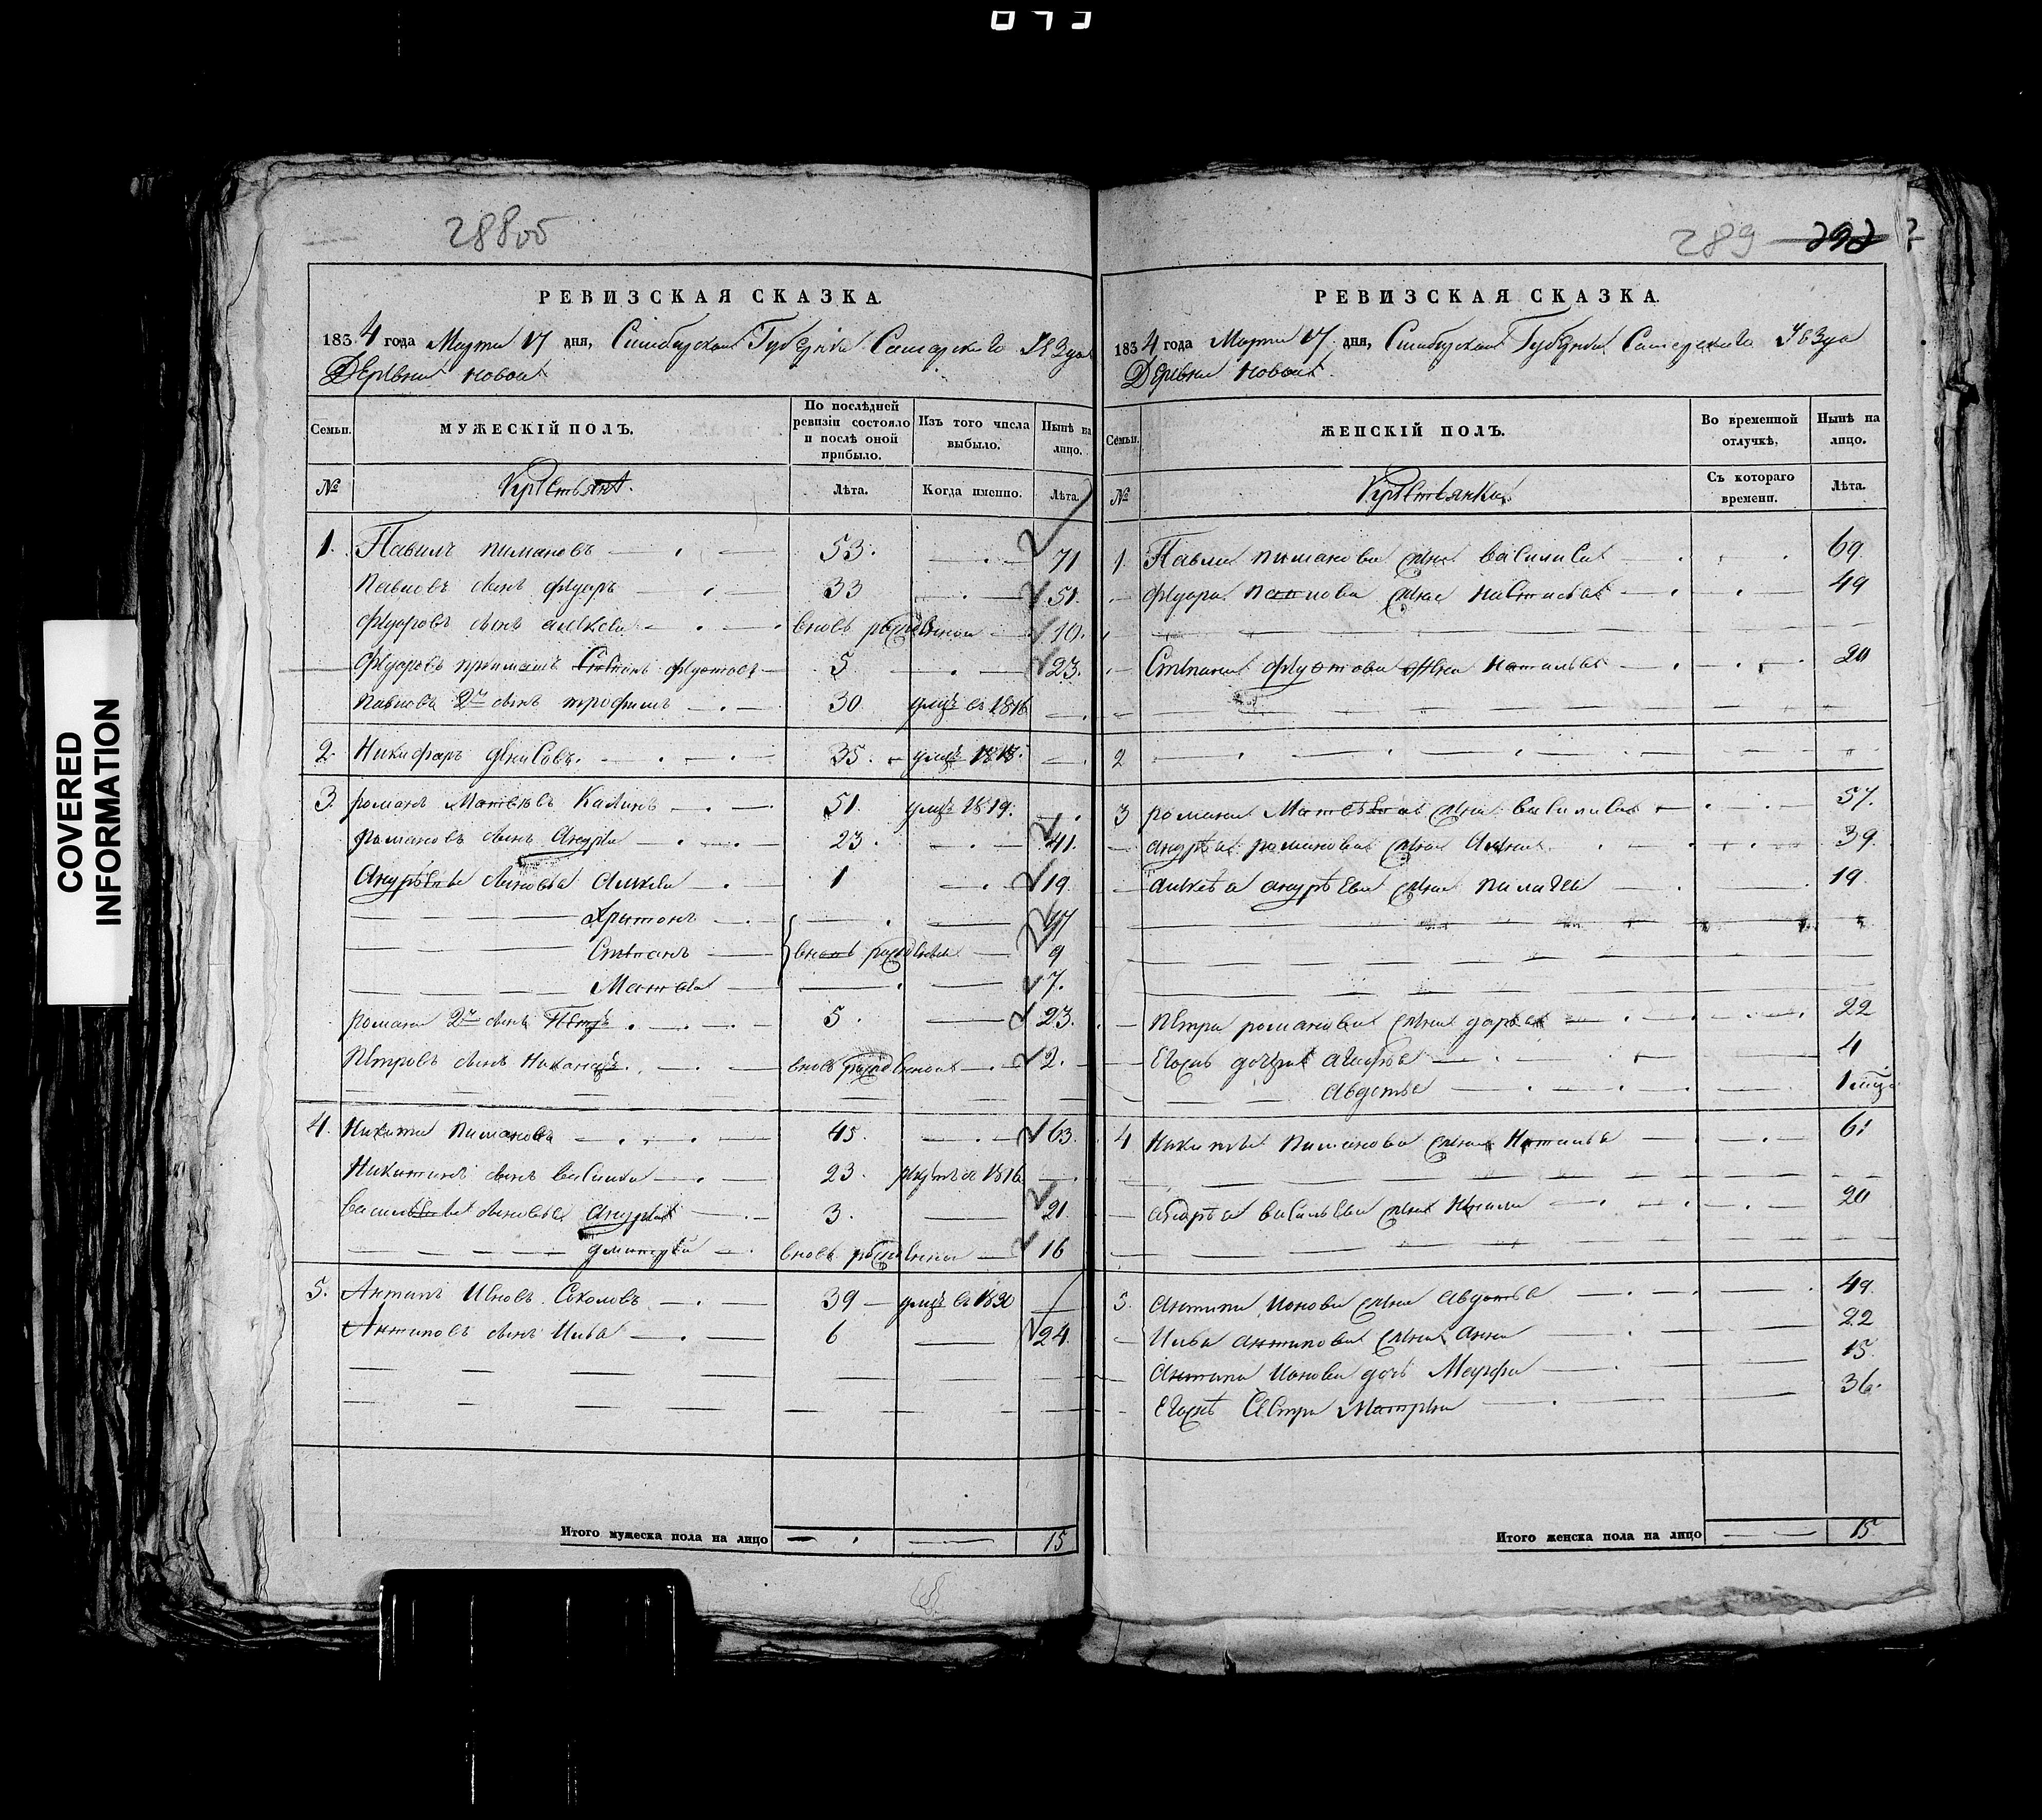 288об
РЕВИЗСКАЯ СКАЗКА.
1834 года Марта 17 дня, Симбирской Губернiи Самарскаго Уезда
Деревни Новой
Семьи. МУЖЕСКІЙ ПОЛЪ. По послѣдней ревизіи состояло и послѣ оной прибыло. Изъ того числа выбыло. Нынѣ на лицо.
№ Крестьяна. Лѣта. Когда именно. Лѣта.
1. Павилъ пимановъ 53. 71
Павловъ сынъ фидоръ 33 51.
фидоровъ сынъ алксей вновь рожденной 10.
Фидоровъ Степанъ федотовъ 5 23.
павлова 2й сынъ трофимъ 30 умеръ в 1816
2. Никифаръ денисовъ. 35. умеръ 1818.
3. романъ Матвеевъ Калинъ 51. умеръ 1819.
романовъ сынъ Андрей 23. 41.
Андрѣева сыновья Алксей 1 19
Харитонъ 17
Степанъ вновь рожденныи 9
Матвей 7.
романа 2й сынъ Петръ 5. 23.
Петровъ сынъ Никаноръ вновь рожденной 2.
4. Никита Пимановъ 45. 63.
Никитинъ сынъ василей 23. рекрутъ в 1816
васильева сыновья Андрей 3. 21.
дмитрей вновь рожденной 16
5. Антипъ Ивновъ Соколовъ 39 умеръ в 1830
Антиповъ сынъ Илья 6 24.
Итого мужеска пола на лицо 15
289
РЕВИЗСКАЯ СКАЗКА.
1834 года Марта 17 дня, Симбирской Губернiи Самарскаго Уезда
Деревни Новой.
Семьи. ЖЕНСКІЙ ПОЛЪ. Во временной отлучкѣ, Нынѣ на лицо.
№ Крестьянки. Съ котораго времени. Лѣта.
1. Павла пиманова жена василиса 69.
фидора павлова жена настасья 49
Степана федотова жена наталья 20
2
3 романа Матвѣева жена василиса 57.
андрѣя романова жена Анна 39
алксѣя андрѣева жена пилагея 19
Петра романова жена дарья 22
Егожъ дочери агафья 4
авдотья 1
4 Никиты пиманова жена Наталья 61
андрѣя васильева жена 20
5. антипа ионова жена авдотья 49.
Ильи антипова жена анна 22
Антипа Ионова дочь Марфа 15
Егожъ Сестра Матрена 36.
Итого женска пола на лицо 15
COVERED
INFORMATION